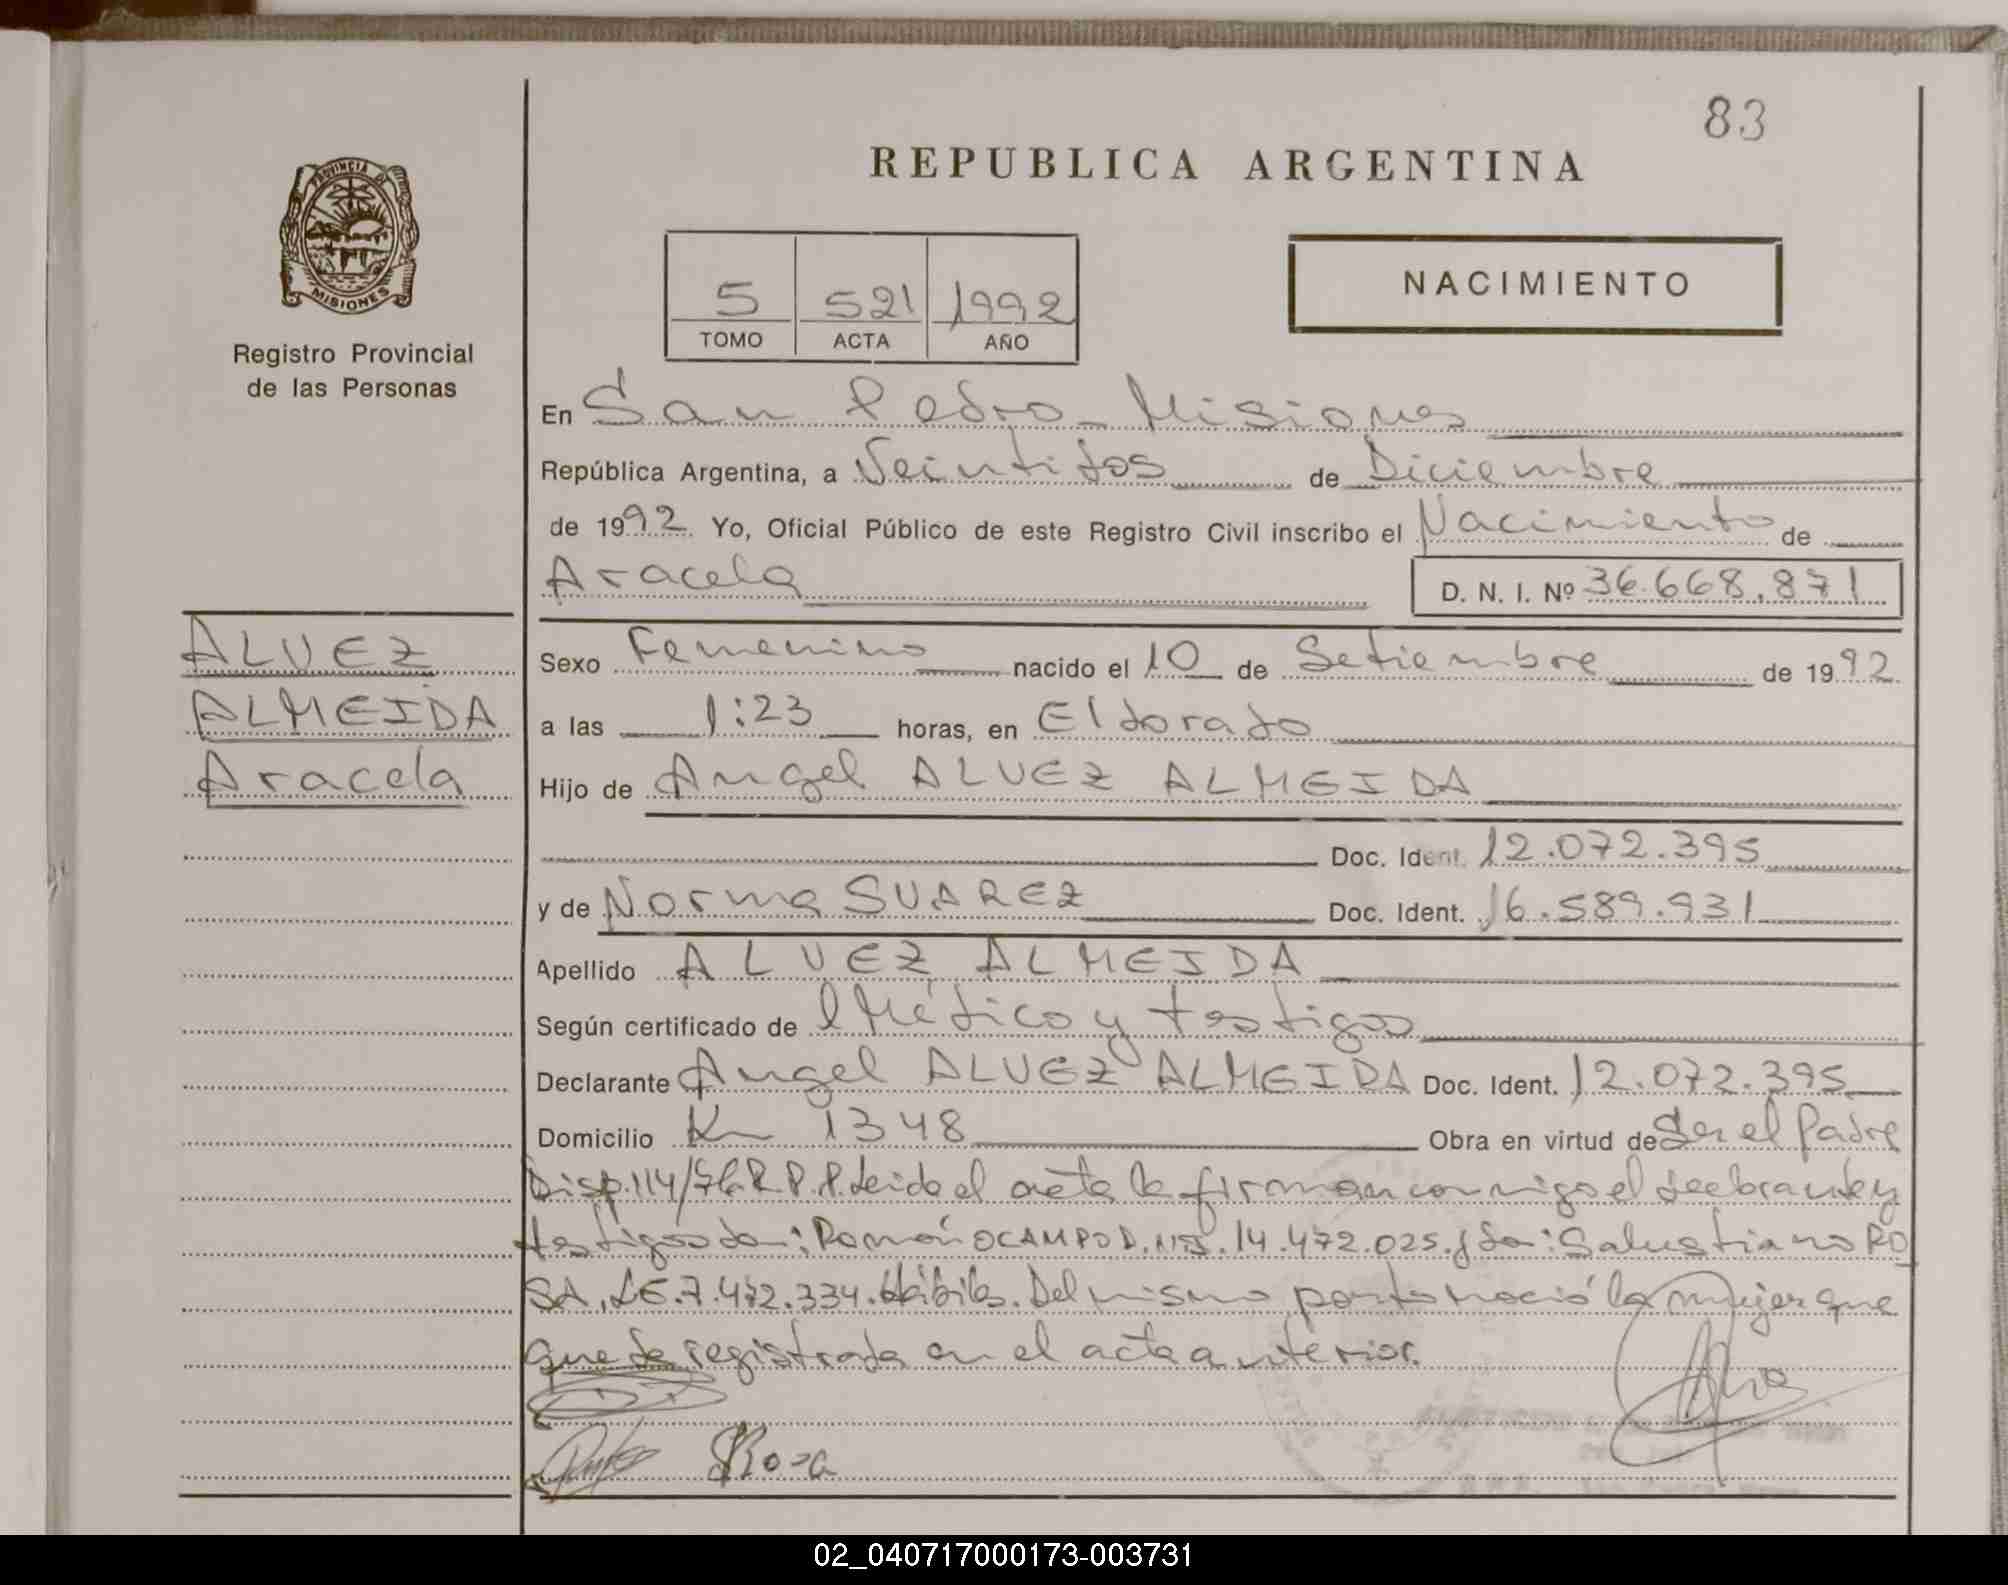 83
REPUBLICA ARGENTINA
PROVINCIA DE
MISIONES
Registro Provincial
de las Personas
5 521 1992
TOMO ACTA AÑO
NACIMIENTO
En San Pedro - Misiones
República Argentina, a Veintidos de Diciembre
de 1992 Yo, Oficial Público de este Registro Civil inscribo el Nacimiento de
Aracela D. N. I. Nº 36.668.871
ALVEZ
ALMEIDA
Aracela
Sexo Femenino nacido el 10 de Setiembre de 1992
a las 1:23 horas, en Eldorado
Hijo de Angel ALVEZ ALMEIDA
Doc. Ident. 12.072.395
y de Norma SUAREZ Doc. Ident. 16.589.931
Apellido ALVEZ ALMEIDA
Según certificado de l Médico y testigos
Declarante Angel ALVEZ ALMEIDA Doc. Ident. 12.072.395
Domicilio Km 1348 Obra en virtud de Ser el Padre
Disp. 114/76 R.P.P. Leida el acta la firman conmigo el declarante y
testigos don: Ramón OCAMPO D.NI. 14.472.025. y don: Salustiano RO
SA, LE. 7.472.334. Hábiles. Del mismo parto nació la mujer que
queda registrada en el acta anterior.
Rosa
02_040717000173-003731